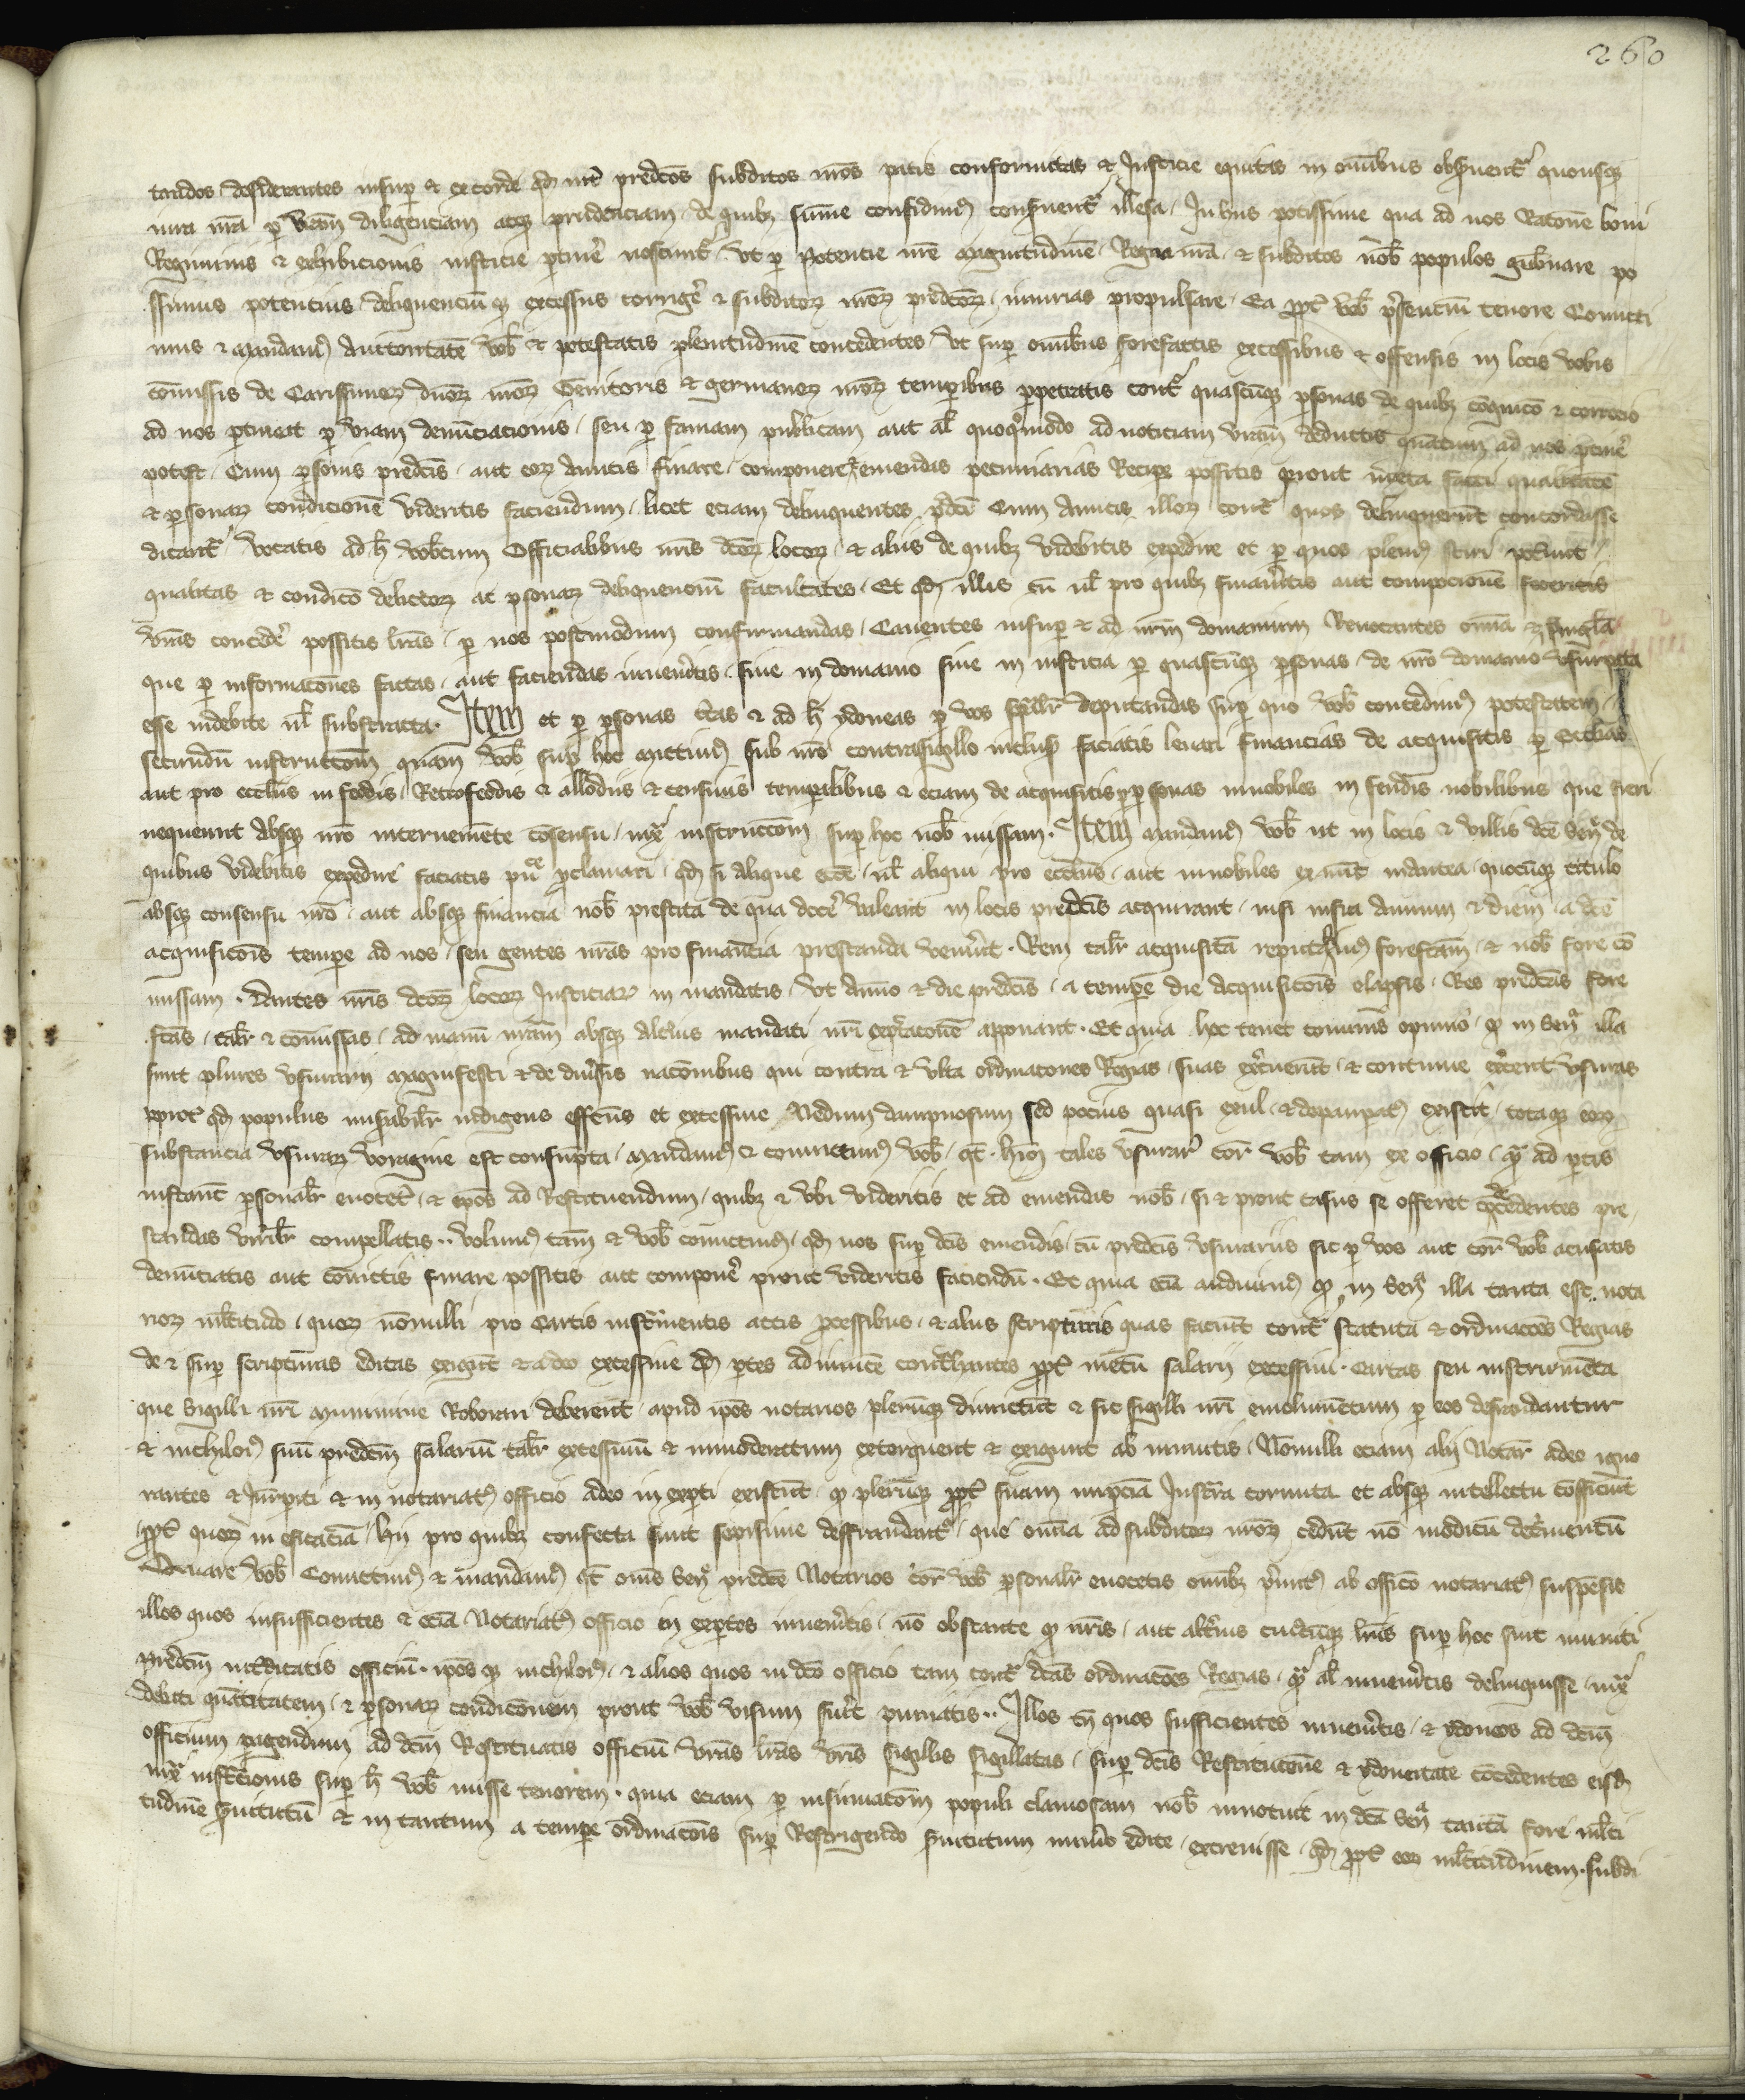 260
tandos desiderantes insup & ex corde qd int predcos subditos nros pacis conformitas & Justicie equitas in omibus obseruent quousq
iura nra p vram diligenciam atq prudenciam de quibz sume confidim conseruent illesa In hiis potissime qua ad nos Racone boni
Regiminis & exhibicionis iusticie ptine noscunt vt p Potencie nre magnitudine Regna nra & subditos nob populos gubnare po
ssimus potencius delinquenciu q excessus corrige & subditoz nroz predcoz iniurias propulsare Ea ppt vob psenciu tenore Comitti
mus & mandam Auctoritate vob & potestatis plenitudine concedentes vt sup omibus forefactis excessibus & offensis in locis vobis
comissis de Carissimoz dnoz nroz Genitoris & germanoz nroz temporibus ppetratis cont quascuq psonas de quibz cognico & correcio
ad nos ptineat p viam denuciacionis seu p famam publicam aut al quoqmodo ad noticiam vram deductis quatum ad nos ptine
potest Cum psonis predcis aut eoz Amicis finare componere & emendas pecuniarias Recipe possitis prout iuxta facti qualitate
& psonaz condicione videritis faciendum licet eciam delinquentes pdci Cum Amicis illoz cont quos delinquerut concordasse
dicant vocatis ad h vobcum Officialibus nris dcoz locoz & aliis de quibz videbitis expedire et p quos pleni sciri potunt
qualitas & condico delictoz ac psonaz delinquenciu facultates Et qd illis cu ul pro quibz finaueritis aut composicione feceritis
vras concede possitis lras p nos postmodum confirmandas Cauentes insup & ad nrm domanium Reuocantes omia & singla
que p informacones factas aut faciendas inueneritis siue in domanio siue in iusticia p quascuq psonas de nro domanio vsurpata
esse indebite ul substracta Item et p psonas ctas & ad h ydoneas p vos spalr deputandas sup quo vob concedim potestatem
secundu instruccom quam vob sup hoc mittim sub nro contrasigillo inclus faciatis leuari financias de acquisitis p Ecclias
aut pro ecclus in feodis Retrofeodis & allodiis & censiuis temporalibus & eciam de acquisitis p psonas innobiles in feudis nobilibus que fieri
nequeunt absq nro interueniente cosensu iux instruccom sup hoc nob missam Item mandam vob ut in locis & villis dce Sen de
quibus videbitis expedire faciatis pu pclamari qd si alique ecce ul aliqui pro ecclus aut innobiles ex nuc inantea quocuq titulo
absq consensu nro aut absq financia nob prestita de qua doce valeant in locis predcis acquirant nisi infra Annum & diem a dce
acquisicois tempe ad nos seu gentes nras pro financia prestanda veniut Rem talr acquisita reputabim forefcam & nob fore co
missam Dantes nris dcoz locoz Justiciar in mandatis vt Anno & die predcis a tempe die acquisicois elapsis Res predcas fore
fcas talr & comissas ad manu nram absq alterius mandati nri expectacone apponant Et quia hoc tenet comuis opinio q in Sen illa
sunt plures vsurarii magnifesti & de diusis nacoibus qui contra & vlta ordinacones Regias suas exercuerut & continue exercent vsuras
ppt qd populus miserabilr indigens effcus et excessiue Nedum dampnosum sed pocius quasi exul & depaupat existit totaq eoz
substancia vsuraz voragine est consupta Mandam & comittim vob qt hiu tales vsurar cor vob tam ex officio q ad ptis
instanc psonalr euocet & ipos ad Restituendum quibz & vbi videritis et ad emendas nob si & prout casus se offeret precedentes pre
standas virilr compellatis volum tam & vob comittim qd nos sup dcis emendis cu predcis vsurariis sic p vos aut cor vob acusatis
denuciatis aut conuictis finare possitis aut compone prout videritis faciendu Et quia ecia audiuim q in Sen illa tanta est nota
rioz mltitudo quoz nonulli pro Cartis instrumentis actis pcessibus & aliis scripturis quas faciut cont statuta & ordinacoes Regias
de & sup scripturas editas exigut & adeo excessiue qd ptes ad inuice contrahentes ppt metu salarii excessiui Cartas seu instrumeta
que Sigilli nri Munimine Roborari deberent apud ipos notarios pleruq dimictut & sic sigilli nri emolumetum p eos defraudantur
& nichilo suu predcm salariu talr excessiuu & inmoderatum extorquent & exigunt ab inuitis Nonulli eciam alii Notar adeo igno
rantes & Imperiti & in notariat officio adeo in expti existut q pleruq ppt suam imperciam Instra cornuta et absq intellectu conficiut
ppt quoz in eficacia hii pro quibz confecta sunt sepissime deffraudant que omia ad subditoz nroz cedut no modicu detrimentu
Quare vob Comittim & mandam qt oms Sen predce Notarios cor vob psonalr euocetis omibz primit ab officio notariat suspesis
illos quos insufficientes & ecia Notariat officio in exptos inuenitis no obstante q nris aut alterius cuiscuq lris sup hoc sint muniti
predcm interdicatis officiu ipos q nichilo & alios quos in dco officio tam cont dcas ordinacoes Regias q al inuenitis delinquisse iux
debiti quatitatem & psonaz condiconem prout vob visum fuit puniatis Illos tn quos sufficientes inuenitis & ydoneos ad dcm
officium pagendum ad dcm Restituatis officiu vras lras vris sigillis sigillatas sup dcis Restitucione & ydoneitate cocedentes eisd
iux instruccionis sup h vob misse tenorem quia eciam p insinuacom populi clamosam nob innotuit in dca Sen tanta fore mlti
tudine seruietiu & in tantum a tempe ordinacois sup Restrigendo seruietium numero edite excreuisse qd ppt eoz mltitudinem subdi